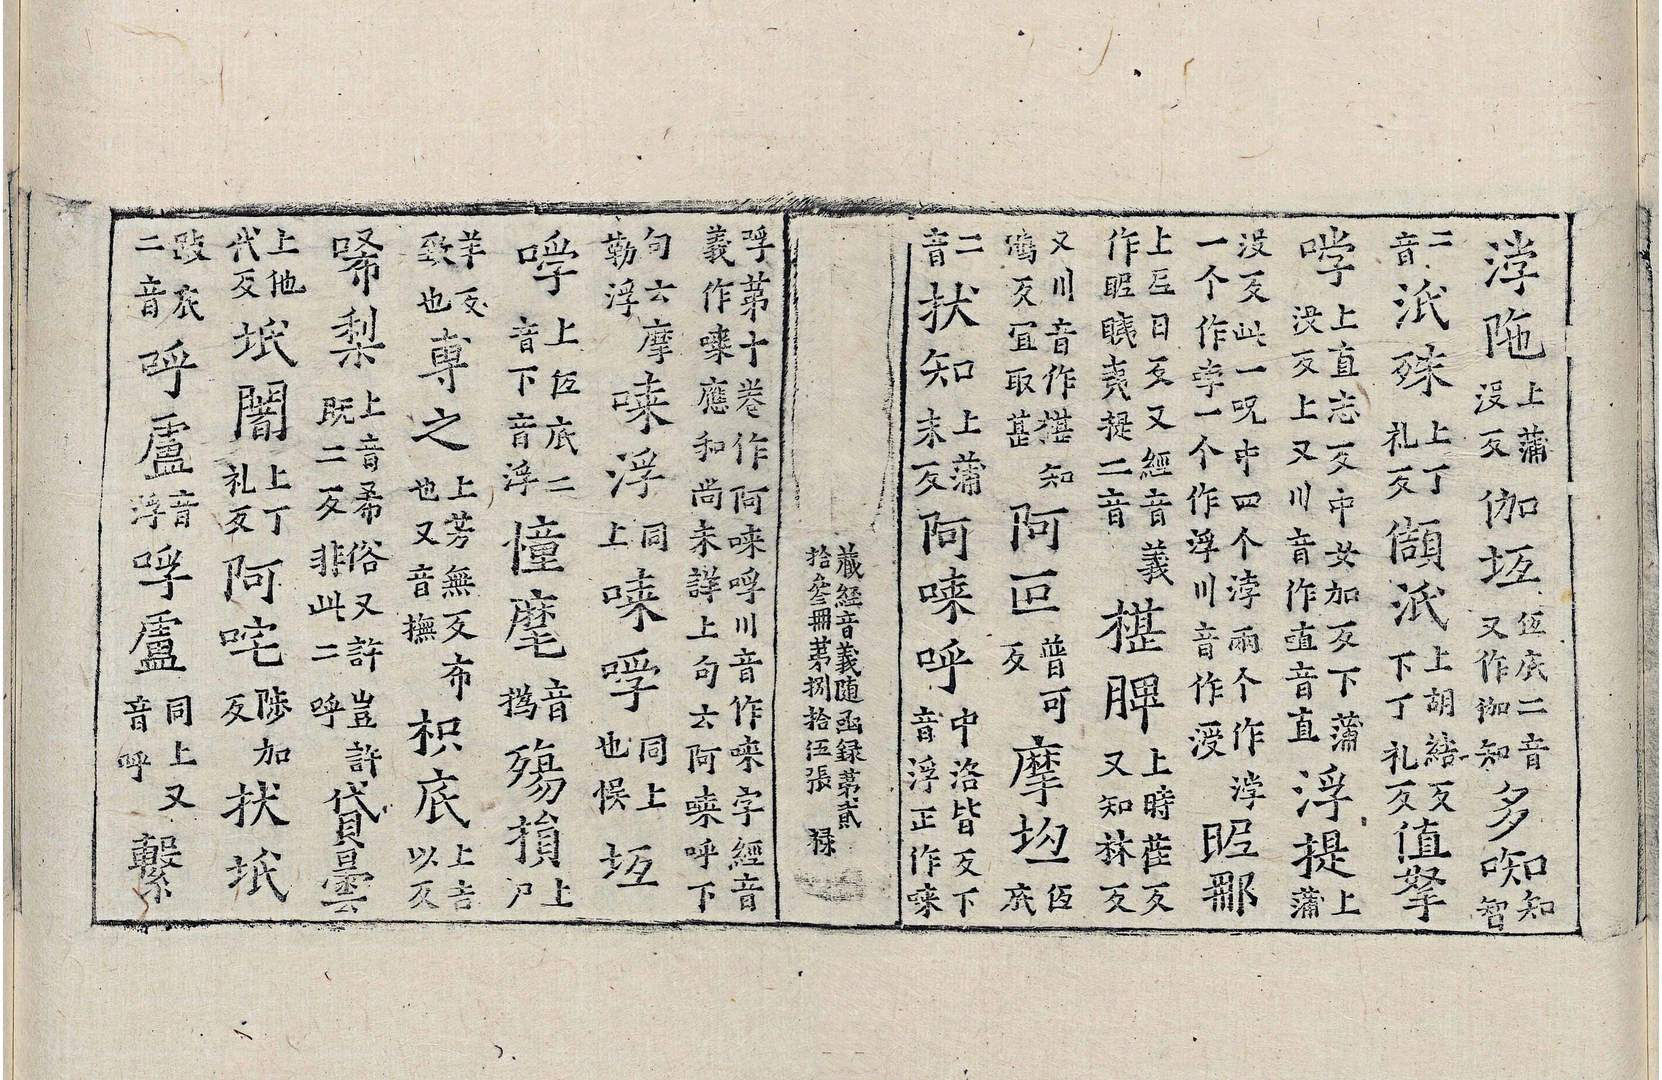 浡陁上蒲没反伽坘低底二音又作伽知多𠼝知知智
二音泜殊上丁礼反𩕳泜上胡結反下丁礼反值拏
㖕上直志反中女加反下蒲没反上又川音作直音直浮提上蒲
没反此一呪中四个浡兩个作浡一个作孛一个作浮川音作浸昵𨚗
上尼日反又經音義作昵䁆夷提二音椹䏶上時葚反又知林反
又川音作椹知鴆反宜取葚阿叵普可反摩坘低底
二音扶知上蒲末反阿唻呼中洛皆反下音浮正作唻
藏經音義随函録第貳拾叁冊第捌拾伍張 禄
㖕第十卷作阿唻㖕川音作唻字經音義作唻應和尚未詳上句云阿唻呼下
句云摩勒浮唻浮同上唻㖕同上也悮坘
㖕上低底二音下音浮憧麾音撝殤損上尸
羊反致也專之上芳無反布也又音撫枳底上吉以反
唏梨上音希俗又許豈許既二反非此二呼貸曇
上他代反坁闍上丁礼反阿咤陟加反扶坁
跂底二音呼盧音浮㖕盧同上又音呼繫